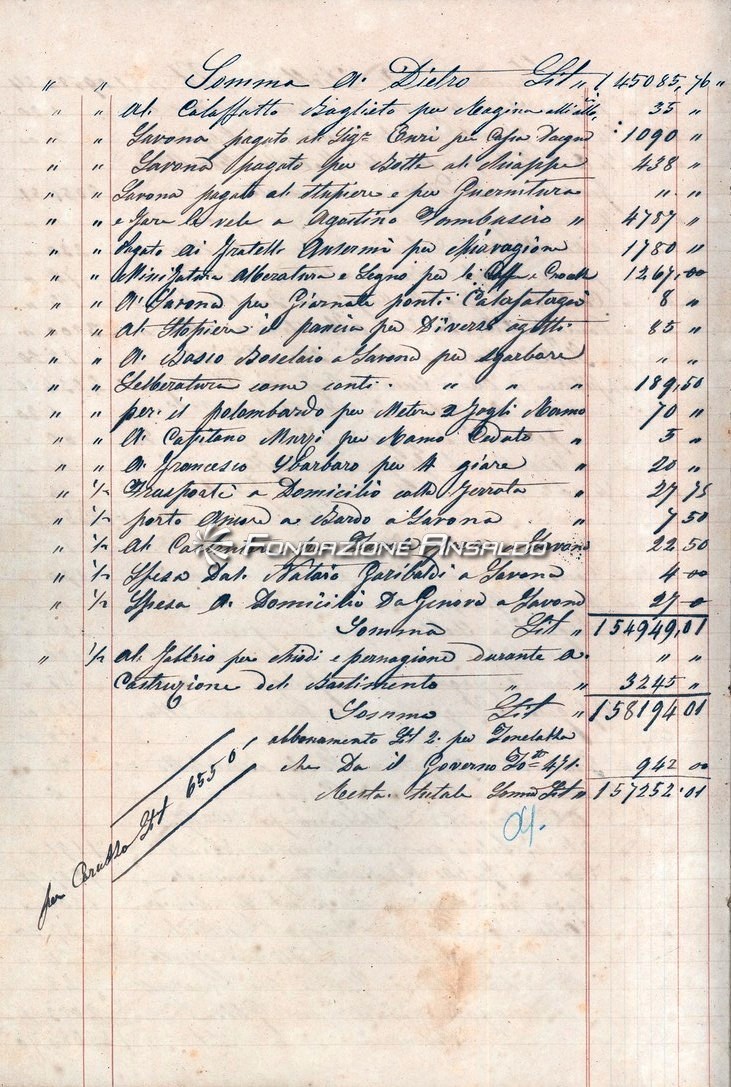 " " Somma A. Dietro Lit " 145085,76 "
" " Al. Calaffatto Baglieto per 35 "
" " Savona pagato al Sigr. Enri per Casia Dacqua 1090 "
" " Savona pagato per Botte al Chiappe 438 "
" " Savona pagato al Stopiere e per Guernitura " "
" " e Fare le vele a Agostino Tombascio " 4787 "
" " Pagato Ai Fratelli Ansermi per 1780 "
" " Alberatura e Legno per le e 1267,00
" " A. Savona per Giornate ponti 8 "
" " Al. Stopiere per Diversi ogetti 85 "
" " A. Bosco a Savona per " "
" " come conti. " " " 189,50
" " per. il polombardo per Metere 2 Fogli Ramo 70 "
" " A. Capitano per Ramo Cedato " 5 "
" " A. Francesco per 4 giare " 20 "
" ½ Trasporti a Domicilio colla Ferrata " 27 75
" ½ porto a Bordo a Savona " 7 50
" ½ Al. Savona 22 50
" ½ Spesa Dal. Notaio Garibaldi a Savona 4 00
" ½ Spesa A. Domicilio Da Genova a Savona 27 0
Somma Lit " 154949,01
" ½ Al. Fabbrio per chiodi e pernagione durante a. " "
Costruzione del. Bastimento " " 3245 "
Somma Lit " 158194 01
abbonamento Lit 2. per Tonelatta
che Da il Governo 471. 942 00
Resta totale Somma Lit " 157252.01
per Lit 6550
FONDAZIONE ANSALDO